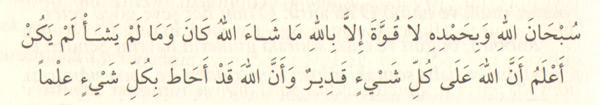 سُبْحَانَ اللهِ وَبِحَمْدِهِ لاَ قُوَّةَ إِلاَّ بِاللهِ مَا شَاءَ اللهُ كَانَ وَمَا لَمْ يَشَأْ لَمْ يَكُنْ
أَعْلَمُ أَنَّ اللهَ عَلَى كُلِّ شَيْءٍ قَدِيرٌ وَأَنَّ اللهَ قَدْ أَحَاطَ بِكُلِّ شَيْءٍ عِلْماً